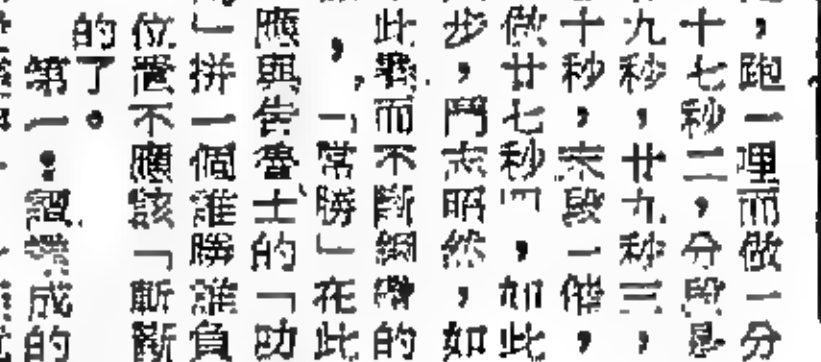 ，跑一哩而做一分
十七秒二，分段是
九秒，廿九秒三，
十秒，末段一催，
做廿七秒四，如此
步，鬥志昭然，如
此戰而不斷綱的
，「常勝」在此
應與告魯士的「功
」拼一個誰勝誰負
位置不應該「斷斷
的了。
第一：習成的